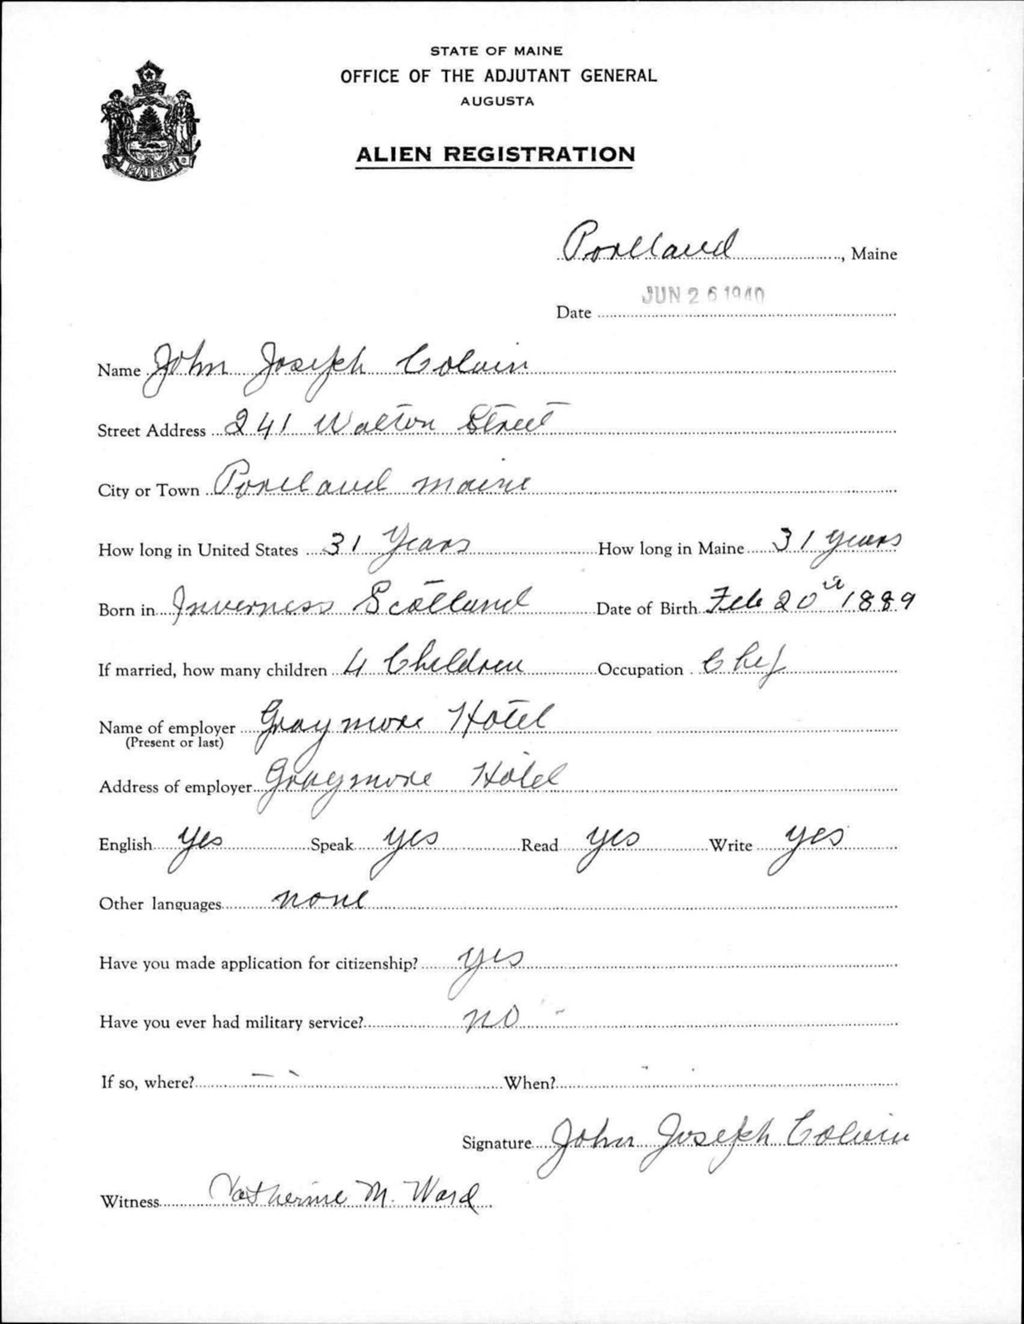 STATE OF MAINE
OFFICE OF THE ADJUTANT GENERAL
AUGUSTA
ALIEN REGISTRATION
MAINE
Portland, Maine
Date JUN 26 1940
Name John Joseph Colvin
Street Address 241 Walton Street
City or Town Portland Maine
How long in United States 31 Years How long in Maine 31 years
Born in Inverness Scotland Date of Birth Feb 20th 1889
If married, how many children 4 Children Occupation Chef
Name of employer Graymore Hotel
(Present or last)
Address of employer Graymore Hotel
English yes Speak yes Read yes Write yes
Other languages none
Have you made application for citizenship? yes
Have you ever had military service? no -
If so, where? - - When? - -
Signature John Joseph Colvin
Witness Katherine M. Ward